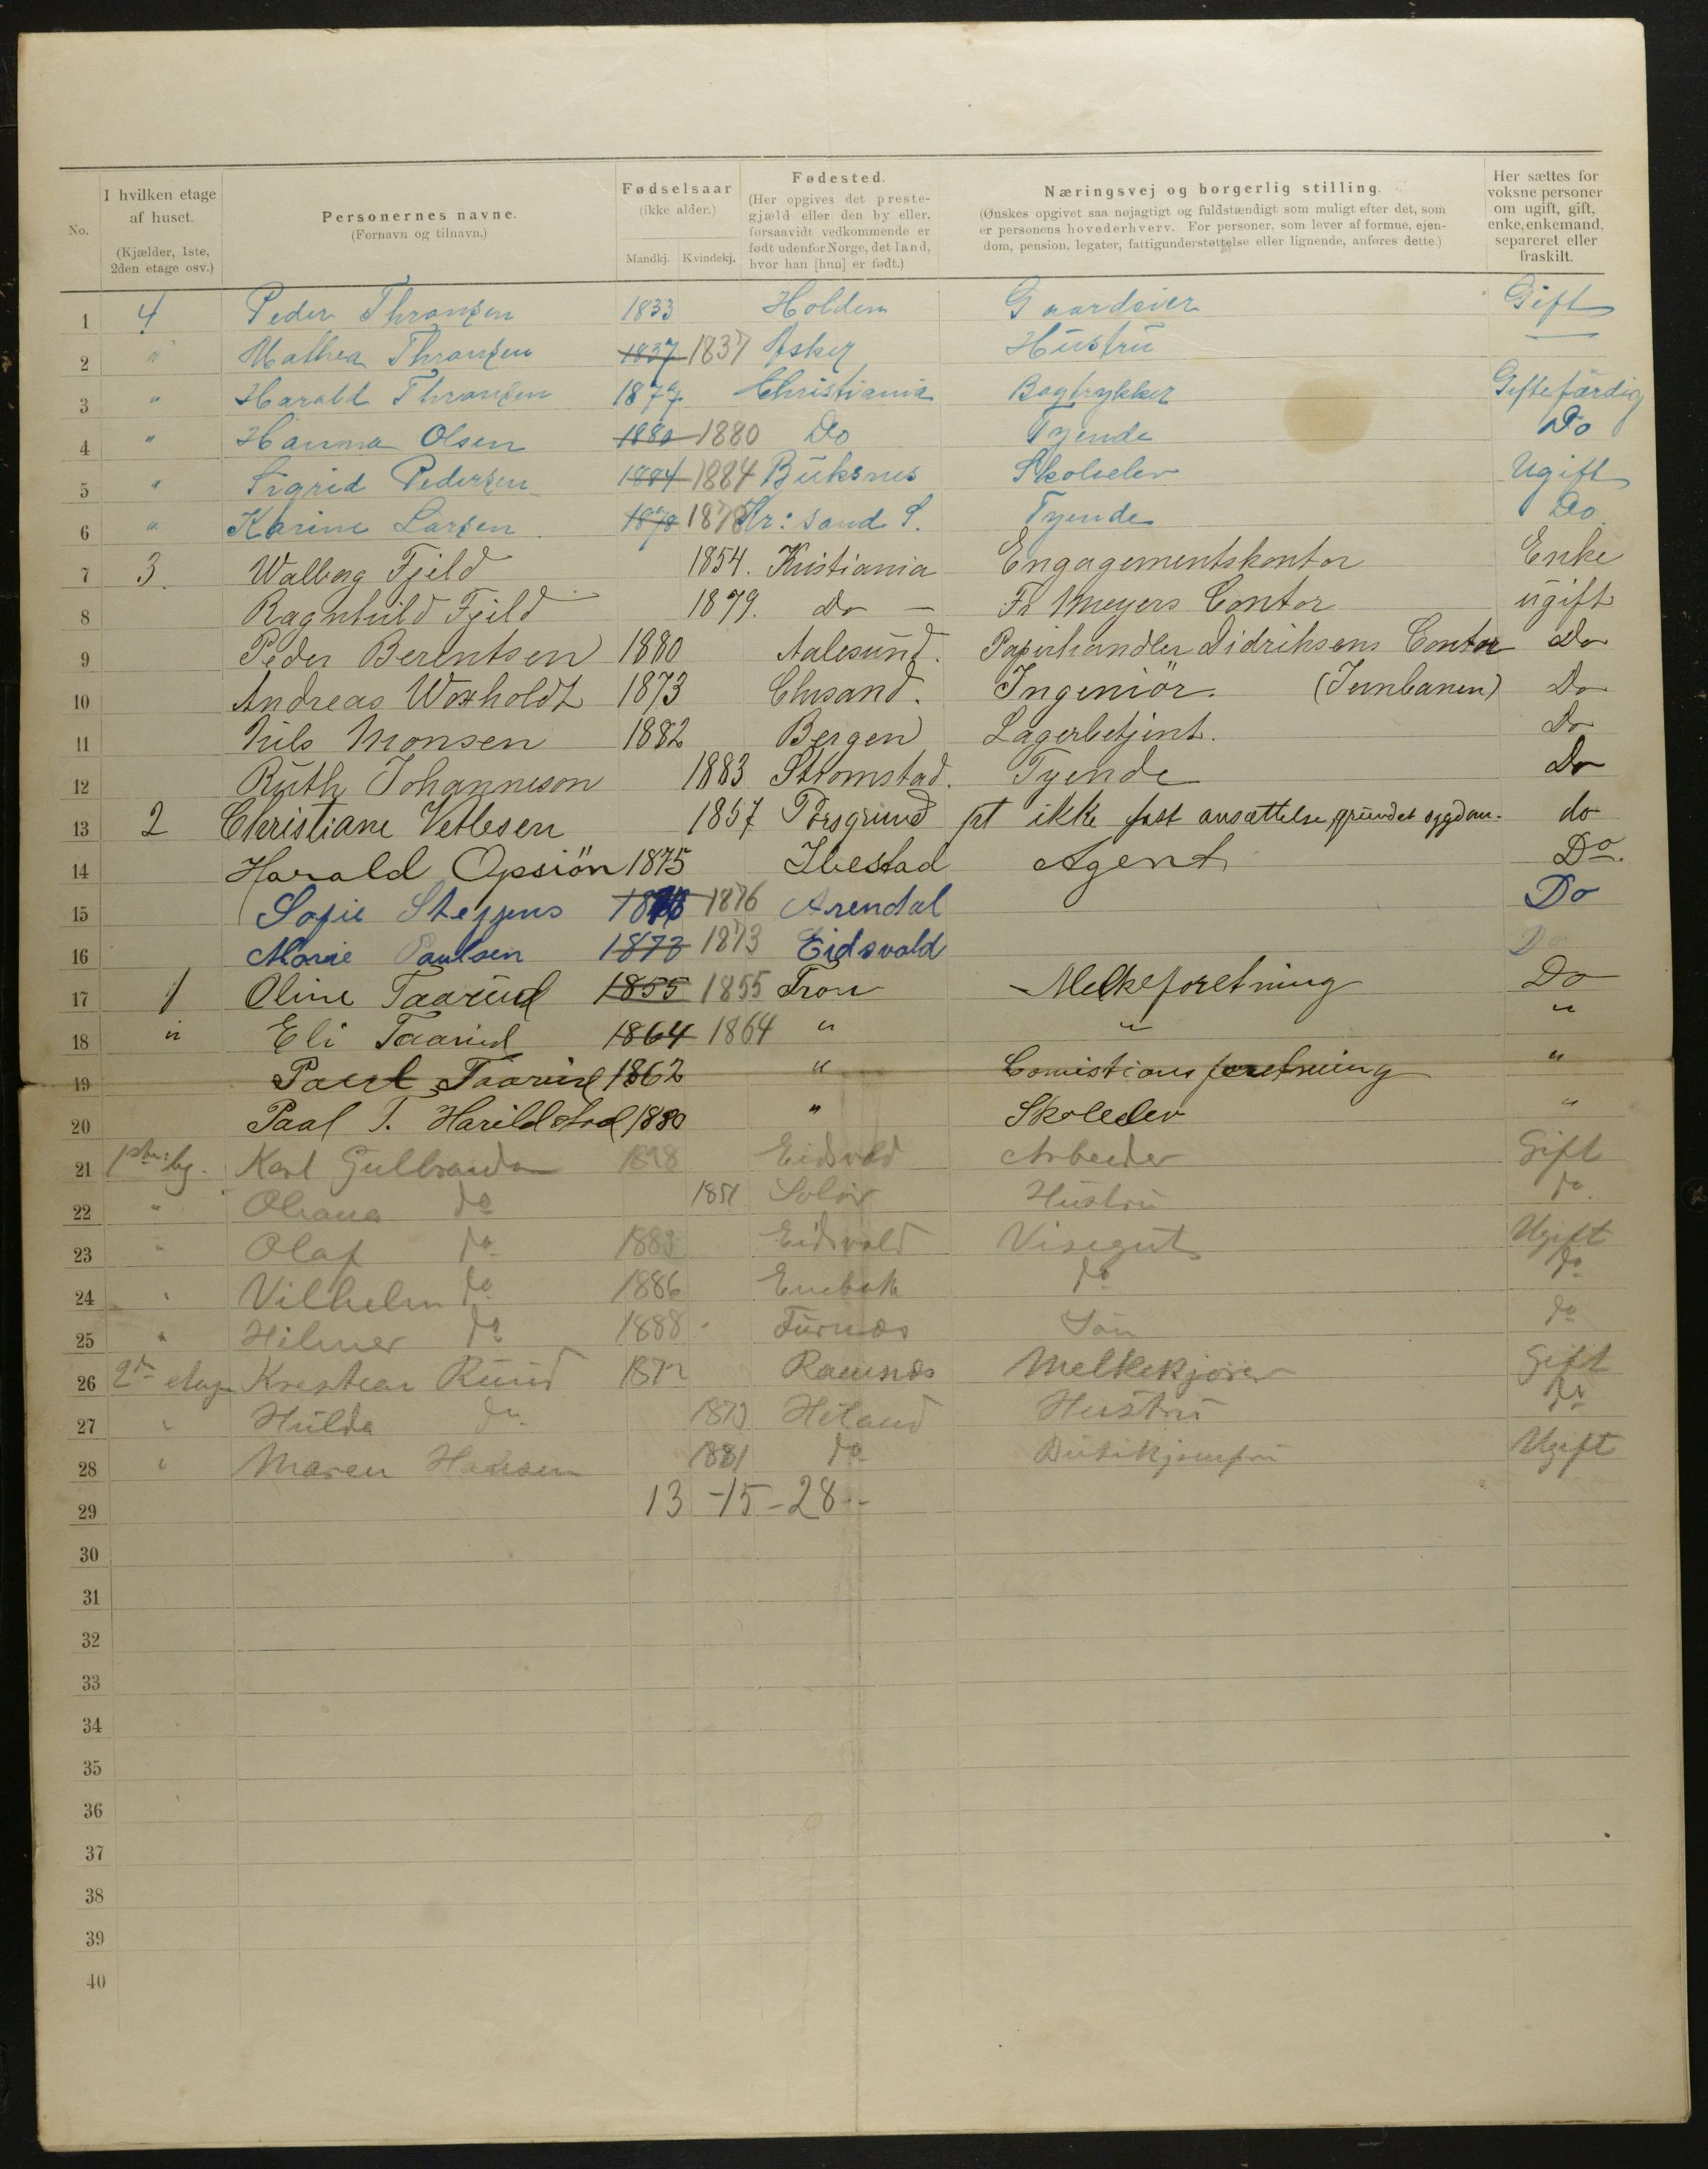 No. I hvilken etage af huset. (Kjælder, 1ste, 2den etage osv.) Personernes navne. (Fornavn og tilnavn.) Fødselsaar (ikke alder.) Mandkj. Kvindekj. Fødested. (Her opgives det prestegjæld eller den by eller, forsaavidt vedkommende er født udenfor Norge, det land, hvor han [hun] er født.) Næringsvej og borgerlig stilling. (Ønskes opgivet saa nøjagtigt og fuldstændigt som muligt efter det, som er personens hovederhverv. For personer, som lever af formue, ejendom, pension, legater, fattigunderstøttelse eller lignende, anføres dette.) Her sættes for voksne personer om ugift, gift, enke, enkemand, separeret eller fraskilt.
1 4 Peder Thransen 1833 Holden Gaardeier Gift
2 " Mathea Thransen 1837 1837 Asker Hustru —
3 " Harald Thransen 1877 Christiania Bogtrykker Giftefærdig
4 " Hanna Olsen 1880 1880 Do Tyende Do
5 " Sigrid Pedersen 1884 1884 Buksnes Skoleelev Ugift
6 " Karine Larsen 1878 1878 Kr: sand S. Tyende Do
7 3 Walborg Fjeld 1854. Kristiania Engagementskontor Enke
8 Ragnhild Fjeld 1879. Do — Fr Meyers Contor ugift
9 Peder Berentsen 1880 Aalesund. Papirhandler Didriksens Contor Do
10 Andreas Woxholdt 1873 Chrsand. Ingeniör. (Jernbanen) Do
11 Nils Monsen 1882 Bergen Lagerbetjent. Do
12 Ruth Johanneson 1883 Strömstad. Tyende Do
13 2 Christiane Vetlesen 1857 Porsgrund pt ikke fast ansættelse, grundet sygdom. do
14 Harald Opsiön 1875 Ibestad Agent Do.
15 Sofie Steffens 1876 1876 Arendal Do
16 Marie Paulsen 1873 1873 Eidsvold Do
17 1 Oline Taarud 1855 1855 Fron Melkeforetning Do
18 " Eli Taarud 1864 1864 " " "
19 Paul Taarud 1862 " Comistions foretning "
20 Paal T. Harildstad 1880 " Skoleelev "
21 Karl Gulbrandsen Eidsvold Arbeider Gift
22 " do 1851 Solør Hustru do.
23 " Olaf do Eidsvold Visergut Ugift
24 " Vilhelm do 1886 Enebak do do
25 " Hilmer do 1888 Furnæs Søn do
26 2den etage Kristian Ruud Ramnæs Melkekjører Gift
27 " Hulda do 1879 Hitand Hustru do
28 " Maren Hansen 1881 do Butikjomfru Ugift
29 13 - 15 - 28 -
30
31
32
33
34
35
36
37
38
39
40